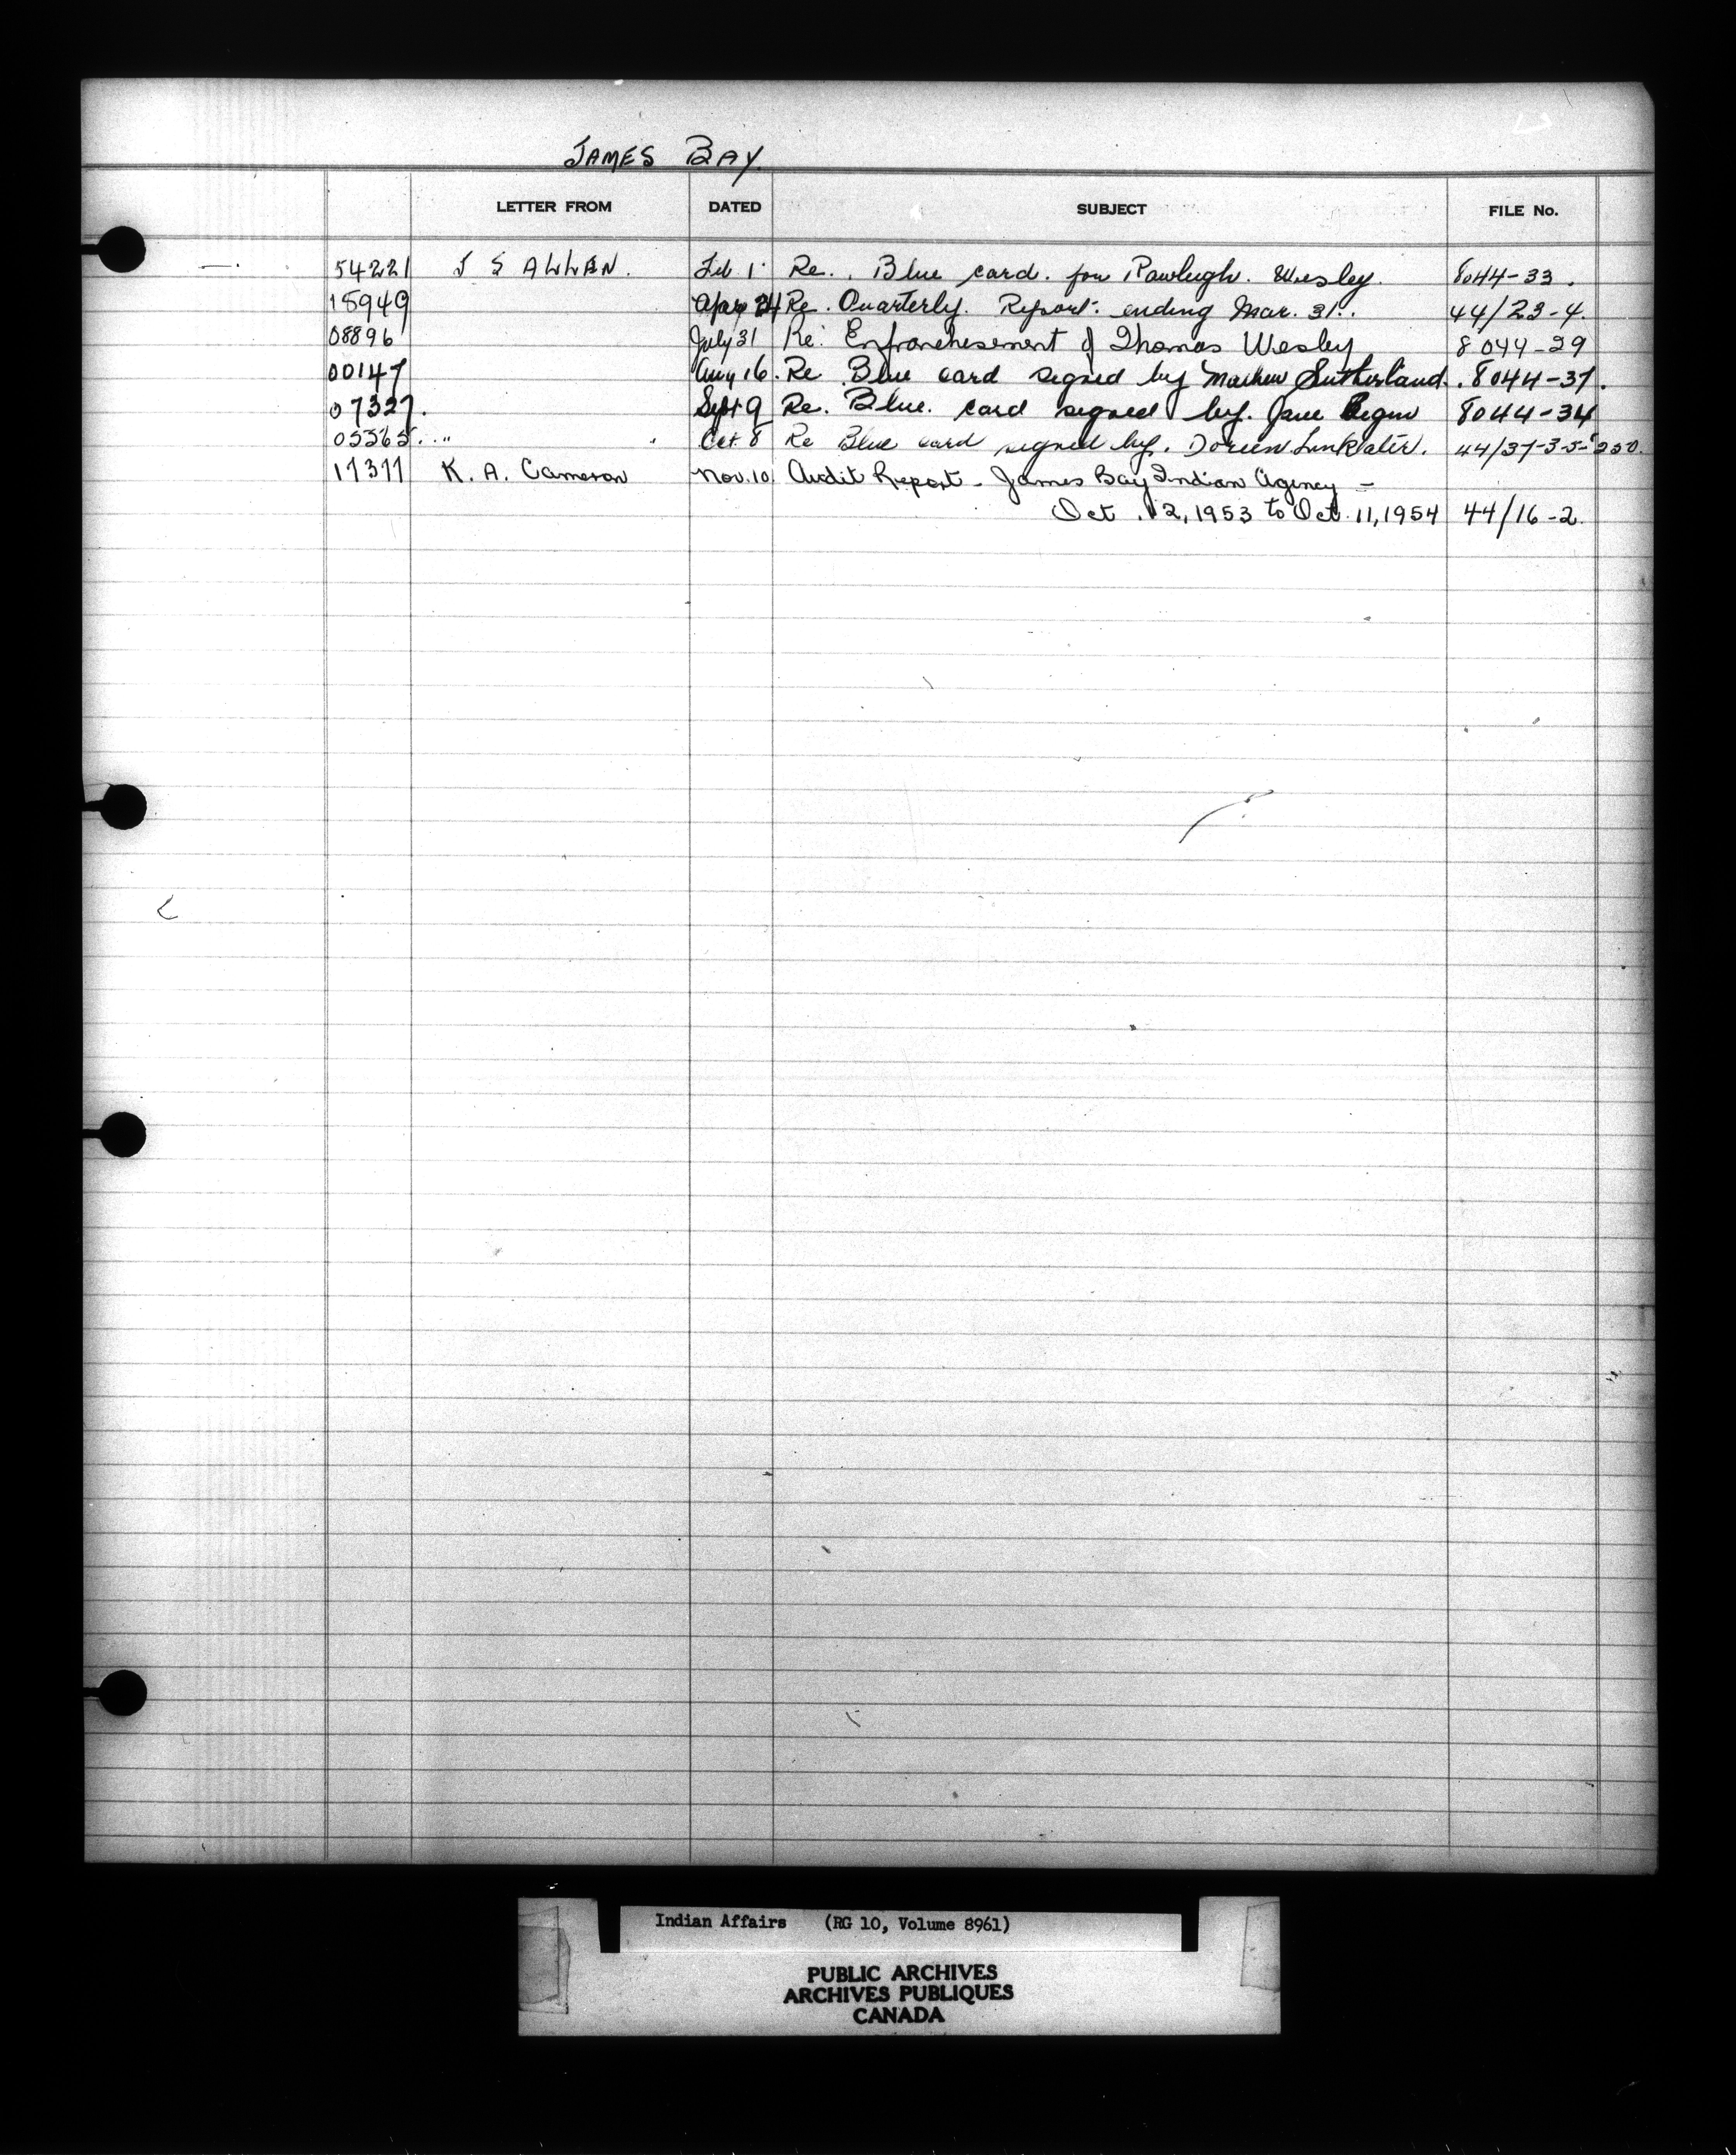 JAMES BAY.
LETTER FROM DATED SUBJECT FILE No.
54221 J S ALLAN. Feb 1 Re. Blue card. for Rawleigh. Wesley. 8044-33.
18949 Re. Quarterly. Report. ending Mar. 31. 44/23-4.
08896 July 31 Re: Enfranchesement of Thomas Wesley 8044-29
00147 Aug 16. Re Blue card signed by Sutherland. 8044-37.
07327. Sept 9 Re. Blue. card signed by. Jane 8044-34
05565. " Oct. 8 Re Blue card signed by. Doreen Linklater. 44/37-3-5-250.
17377 K. A. Cameron Nov. 10 Audit Report - James Bay Indian Agency -
Oct. 12, 1953 to Oct. 11, 1954 44/16-2.
Indian Affairs (RG 10, Volume 8961)
PUBLIC ARCHIVES
ARCHIVES PUBLIQUES
CANADA